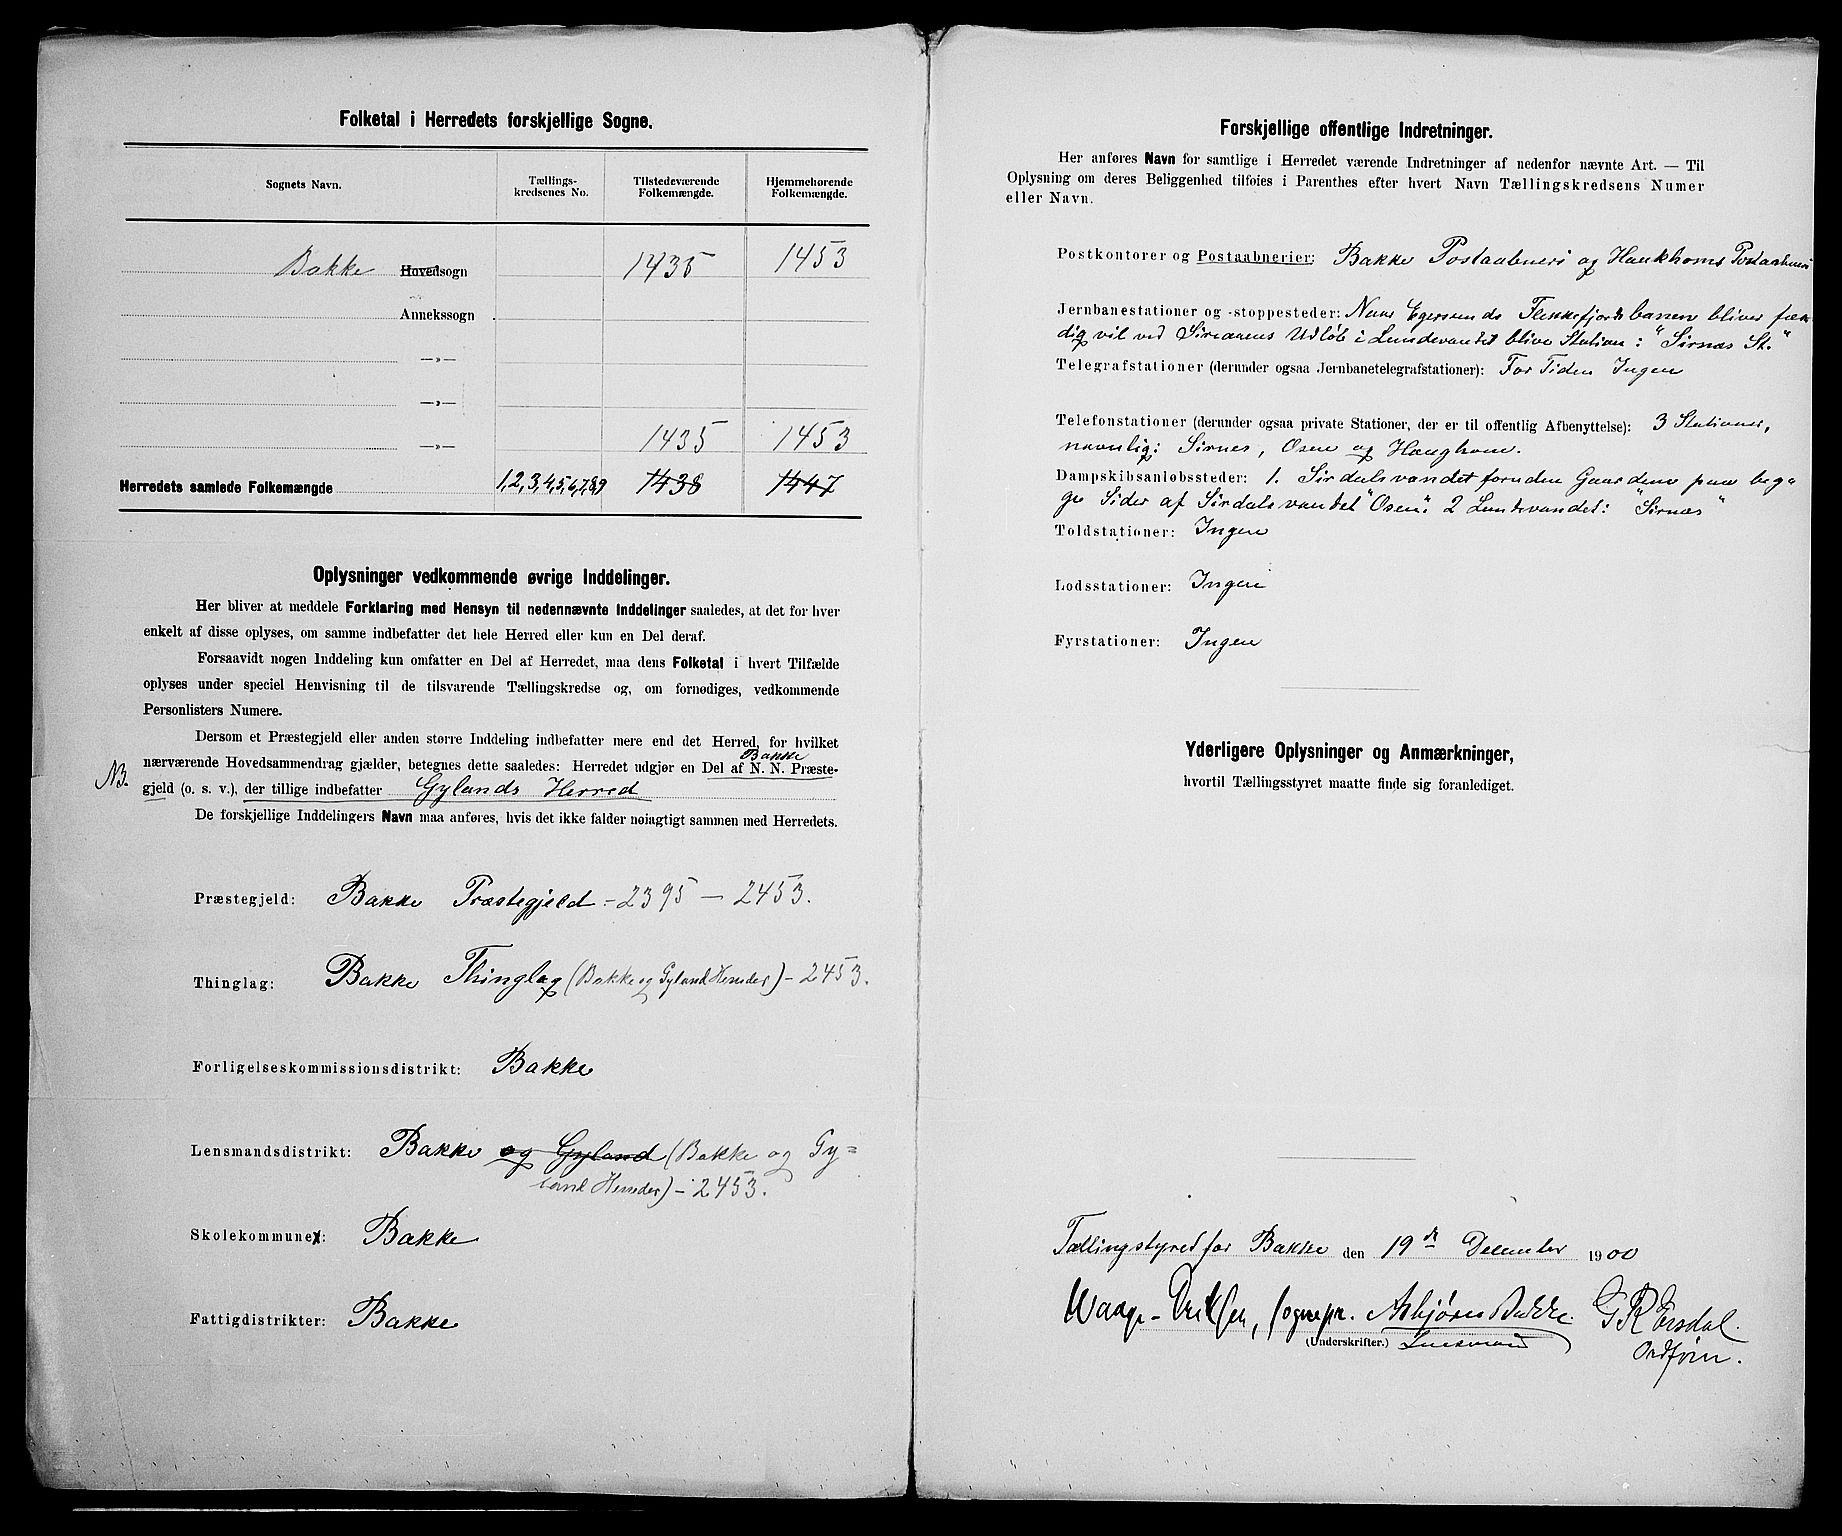 Folketal i Herredets forskjellige Sogne.
Sognets Navn.
Tællings-
kredsenes No.
Tilstedeværende
Folkemængde.
Hjemmehørende
Folkemængde.
Bakke Hovedsogn 1435 1453
Annekssogn
—»—
—»—
—»— 1435 1453
Herredets samlede Folkemængde 1,2,3,4,5,6,7,8,9 1438 1447
Oplysninger vedkommende øvrige Inddelinger.
Her bliver at meddele Forklaring med Hensyn til nedennævnte Inddelinger saaledes, at det for hver
enkelt af disse oplyses, om samme indbefatter det hele Herred eller kun en Del deraf.
Forsaavidt nogen Inddeling kun omfatter en Del af Herredet, maa dens Folketal i hvert Tilfælde
oplyses under speciel Henvisning til de tilsvarende Tællingskredse og, om fornødiges, vedkommende
Personlisters Numere.
Dersom et Præstegjeld eller anden større Inddeling indbefatter mere end det Herred, for hvilket
Bakke
nærværende Hovedsammendrag gjælder, betegnes dette saaledes: Herredet udgjør en Del af N. N. Præste-
NB.
gjeld (o. s. v.), der tillige indbefatter Gylands Herred
De forskjellige Inddelingers Navn maa anføres, hvis det ikke falder nøiagtigt sammen med Herredets.
Præstegjeld: Bakke Præstegjeld - 2395 — 2453.
Thinglag: Bakke Thinglag (Bakke og Gyland Herreder) - 2453.
Forligelseskommissionsdistrikt: Bakke
Lensmandsdistrikt: Bakke og Gyland (Bakke og Gy=
land Herreder) - 2453.
Skolekommuner: Bakke
Fattigdistrikter: Bakke
Forskjellige offentlige Indretninger.
Her anføres Navn for samtlige i Herredet værende Indretninger af nedenfor nævnte Art. — Til
Oplysning om deres Beliggenhed tilføies i Parenthes efter hvert Navn Tællingskredsens Numer
eller Navn.
Postkontorer og Postaabnerier: Bakke Postaabneri og Haukhoms Postaabneri
Jernbanestationer og -stoppesteder: Naar Egersunds Flekkefjords banen bliver fær
dig vil ved Siraaens Udløb i Lundevandet blive Station: "Sirnæs St."
Telegrafstationer (derunder ogsaa Jernbanetelegrafstationer): For Tiden Ingen
Telefonstationer (derunder ogsaa private Stationer, der er til offentlig Afbenyttelse): 3 Stationer,
navnlig: Sirnes, Osen og Haughom.
Dampskibsanløbssteder: 1. Sirdalsvandet foruden Gaardene paa beg=
ge Sider af Sirdalsvandet "Osen". 2 Lundevandet: "Sirnæs"
Toldstationer: Ingen
Lodsstationer: Ingen
Fyrstationer: Ingen
Yderligere Oplysninger og Anmærkninger,
hvortil Tællingsstyret maatte finde sig foranlediget.
Tællingsstyred for Bakke den 19de December 1900
Waage-Eriksen, sognepr. Asbjørn Bakke. G R Ersdal.
(Underskrifter.) Lensmand Ordfører.